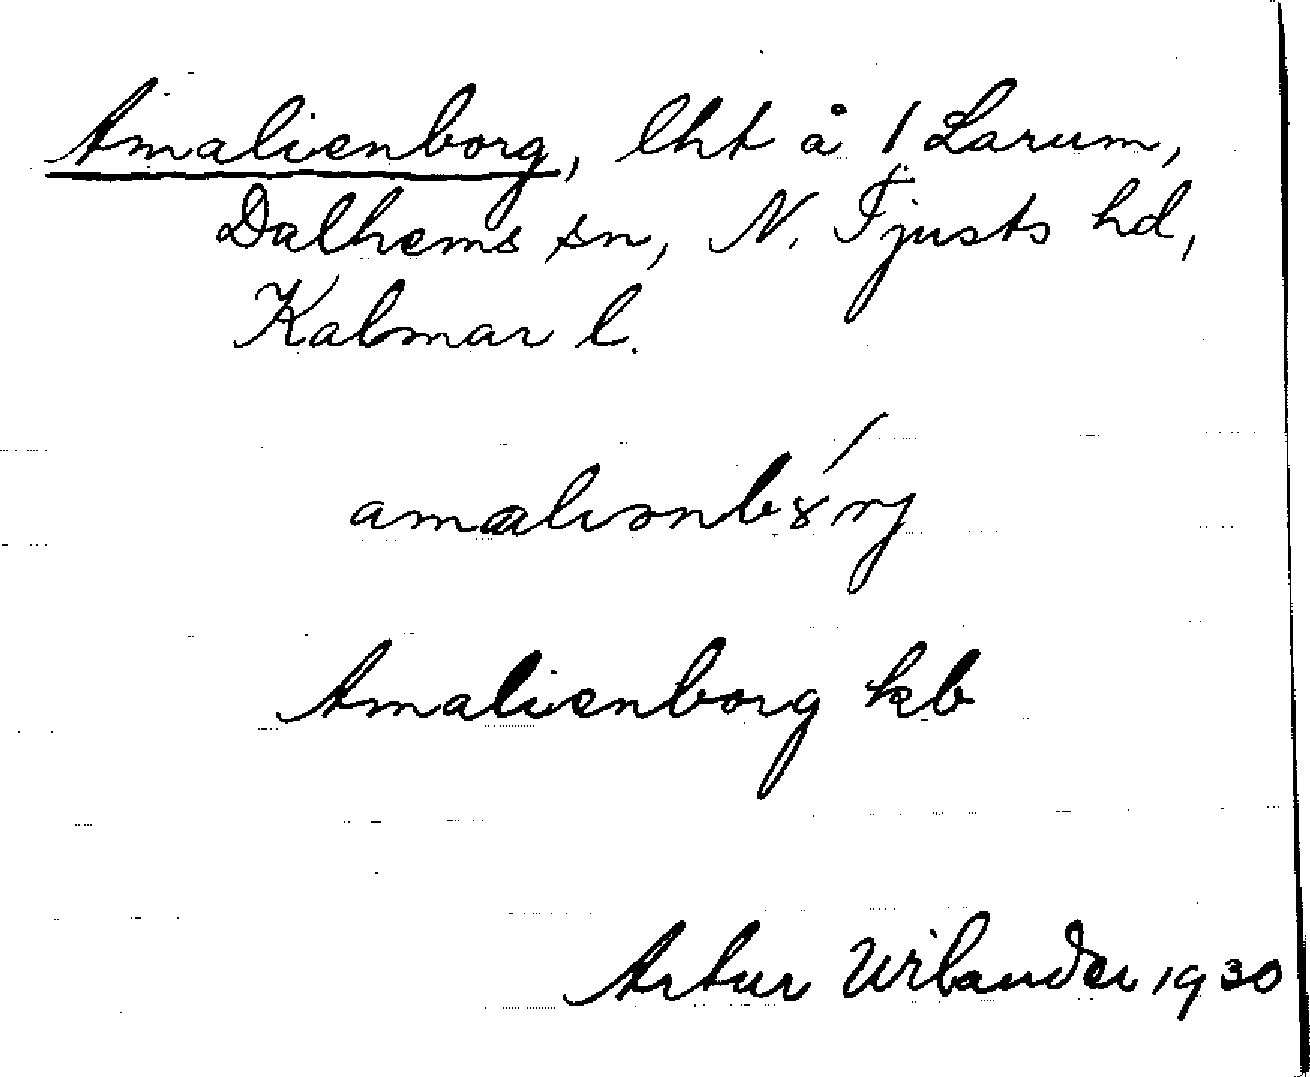 Amalienborg, lht å 1 Larum,
Dalhems sn, N. Tjusts hd,
Kalmar l.
Amalienborg kb
Artur Wilander 1930